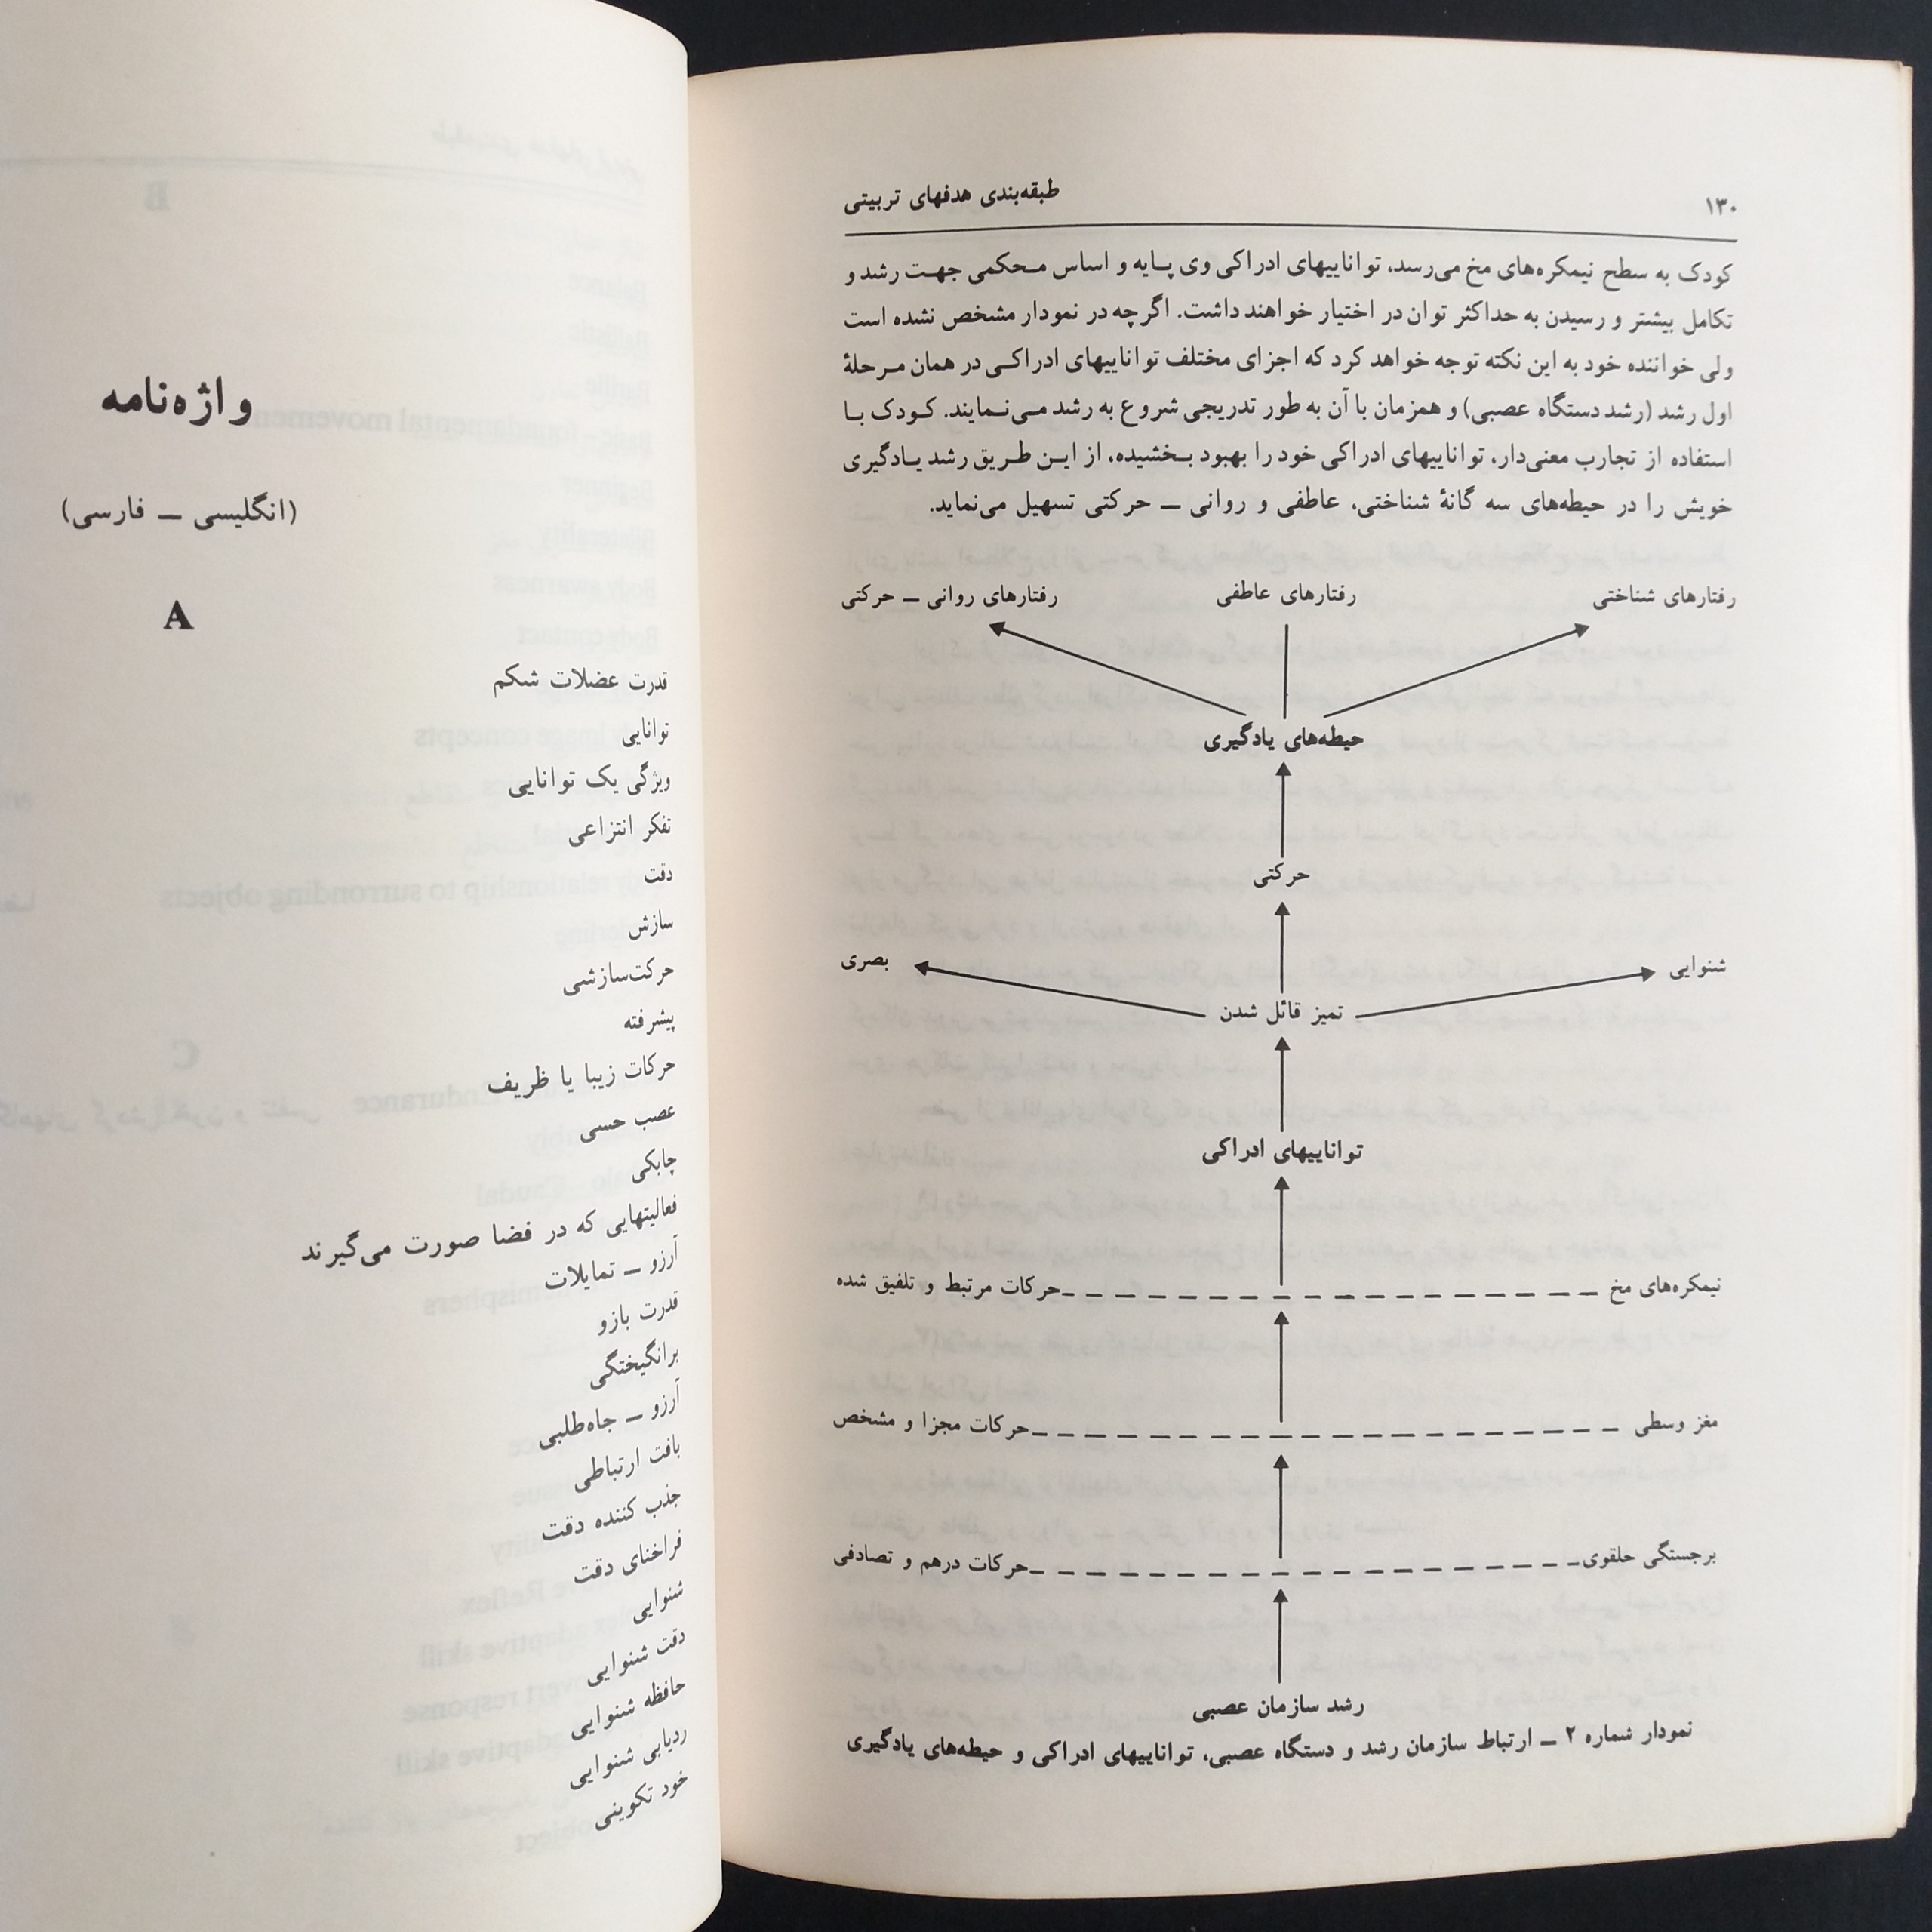 ۱۳۰
طبقه‌بندی هدفهای تربیتی
کودک به سطح نیمکره‌های مخ می‌رسد، تواناییهای ادراکی وی پایه و اساس محکمی جهت رشد و
تکامل بیشتر و رسیدن به حداکثر توان در اختیار خواهند داشت. اگرچه در نمودار مشخص نشده است
ولی خواننده خود به این نکته توجه خواهد کرد که اجزای مختلف تواناییهای ادراکی در همان مرحلهٔ
اول رشد (رشد دستگاه عصبی) و همزمان با آن به طور تدریجی شروع به رشد می‌نمایند. کودک با
استفاده از تجارب معنی‌دار، تواناییهای ادراکی خود را بهبود بخشیده، از این طریق رشد یادگیری
خویش را در حیطه‌های سه گانهٔ شناختی، عاطفی و روانی ـ حرکتی تسهیل می‌نماید.
رفتارهای شناختی
رفتارهای عاطفی
رفتارهای روانی ـ حرکتی
حیطه‌های یادگیری
حرکتی
شنوایی
بصری
تمیز قائل شدن
تواناییهای ادراکی
نیمکره‌های مخ
حرکات مرتبط و تلفیق شده
مغز وسطی
حرکات مجزا و مشخص
برجستگی حلقوی
حرکات درهم و تصادفی
رشد سازمان عصبی
نمودار شماره ۲ ـ ارتباط سازمان رشد و دستگاه عصبی، تواناییهای ادراکی و حیطه‌های یادگیری
واژه‌نامه
(انگلیسی ـ فارسی)
A
قدرت عضلات شکم
توانایی
ویژگی یک توانایی
تفکر انتزاعی
دقت
سازش
حرکت‌سازشی
پیشرفته
حرکات زیبا یا ظریف
عصب حسی
چابکی
فعالیتهایی که در فضا صورت می‌گیرند
آرزو ـ تمایلات
قدرت بازو
برانگیختگی
آرزو ـ جاه‌طلبی
بافت ارتباطی
جذب کننده دقت
فراخنای دقت
شنوایی
دقت شنوایی
حافظه شنوایی
ردیابی شنوایی
خود تکوینی